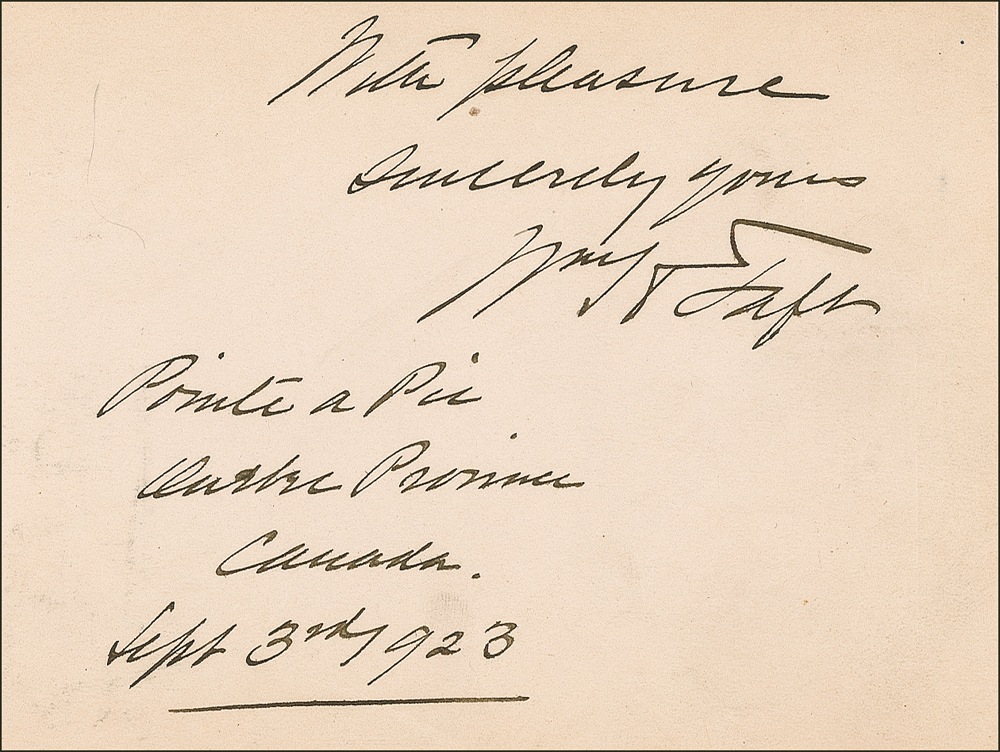 With pleasure
Sincerely yours
Wm H Taft
Pointe a Pic
Quebec Province
Canada.
Sept 3rd 1923